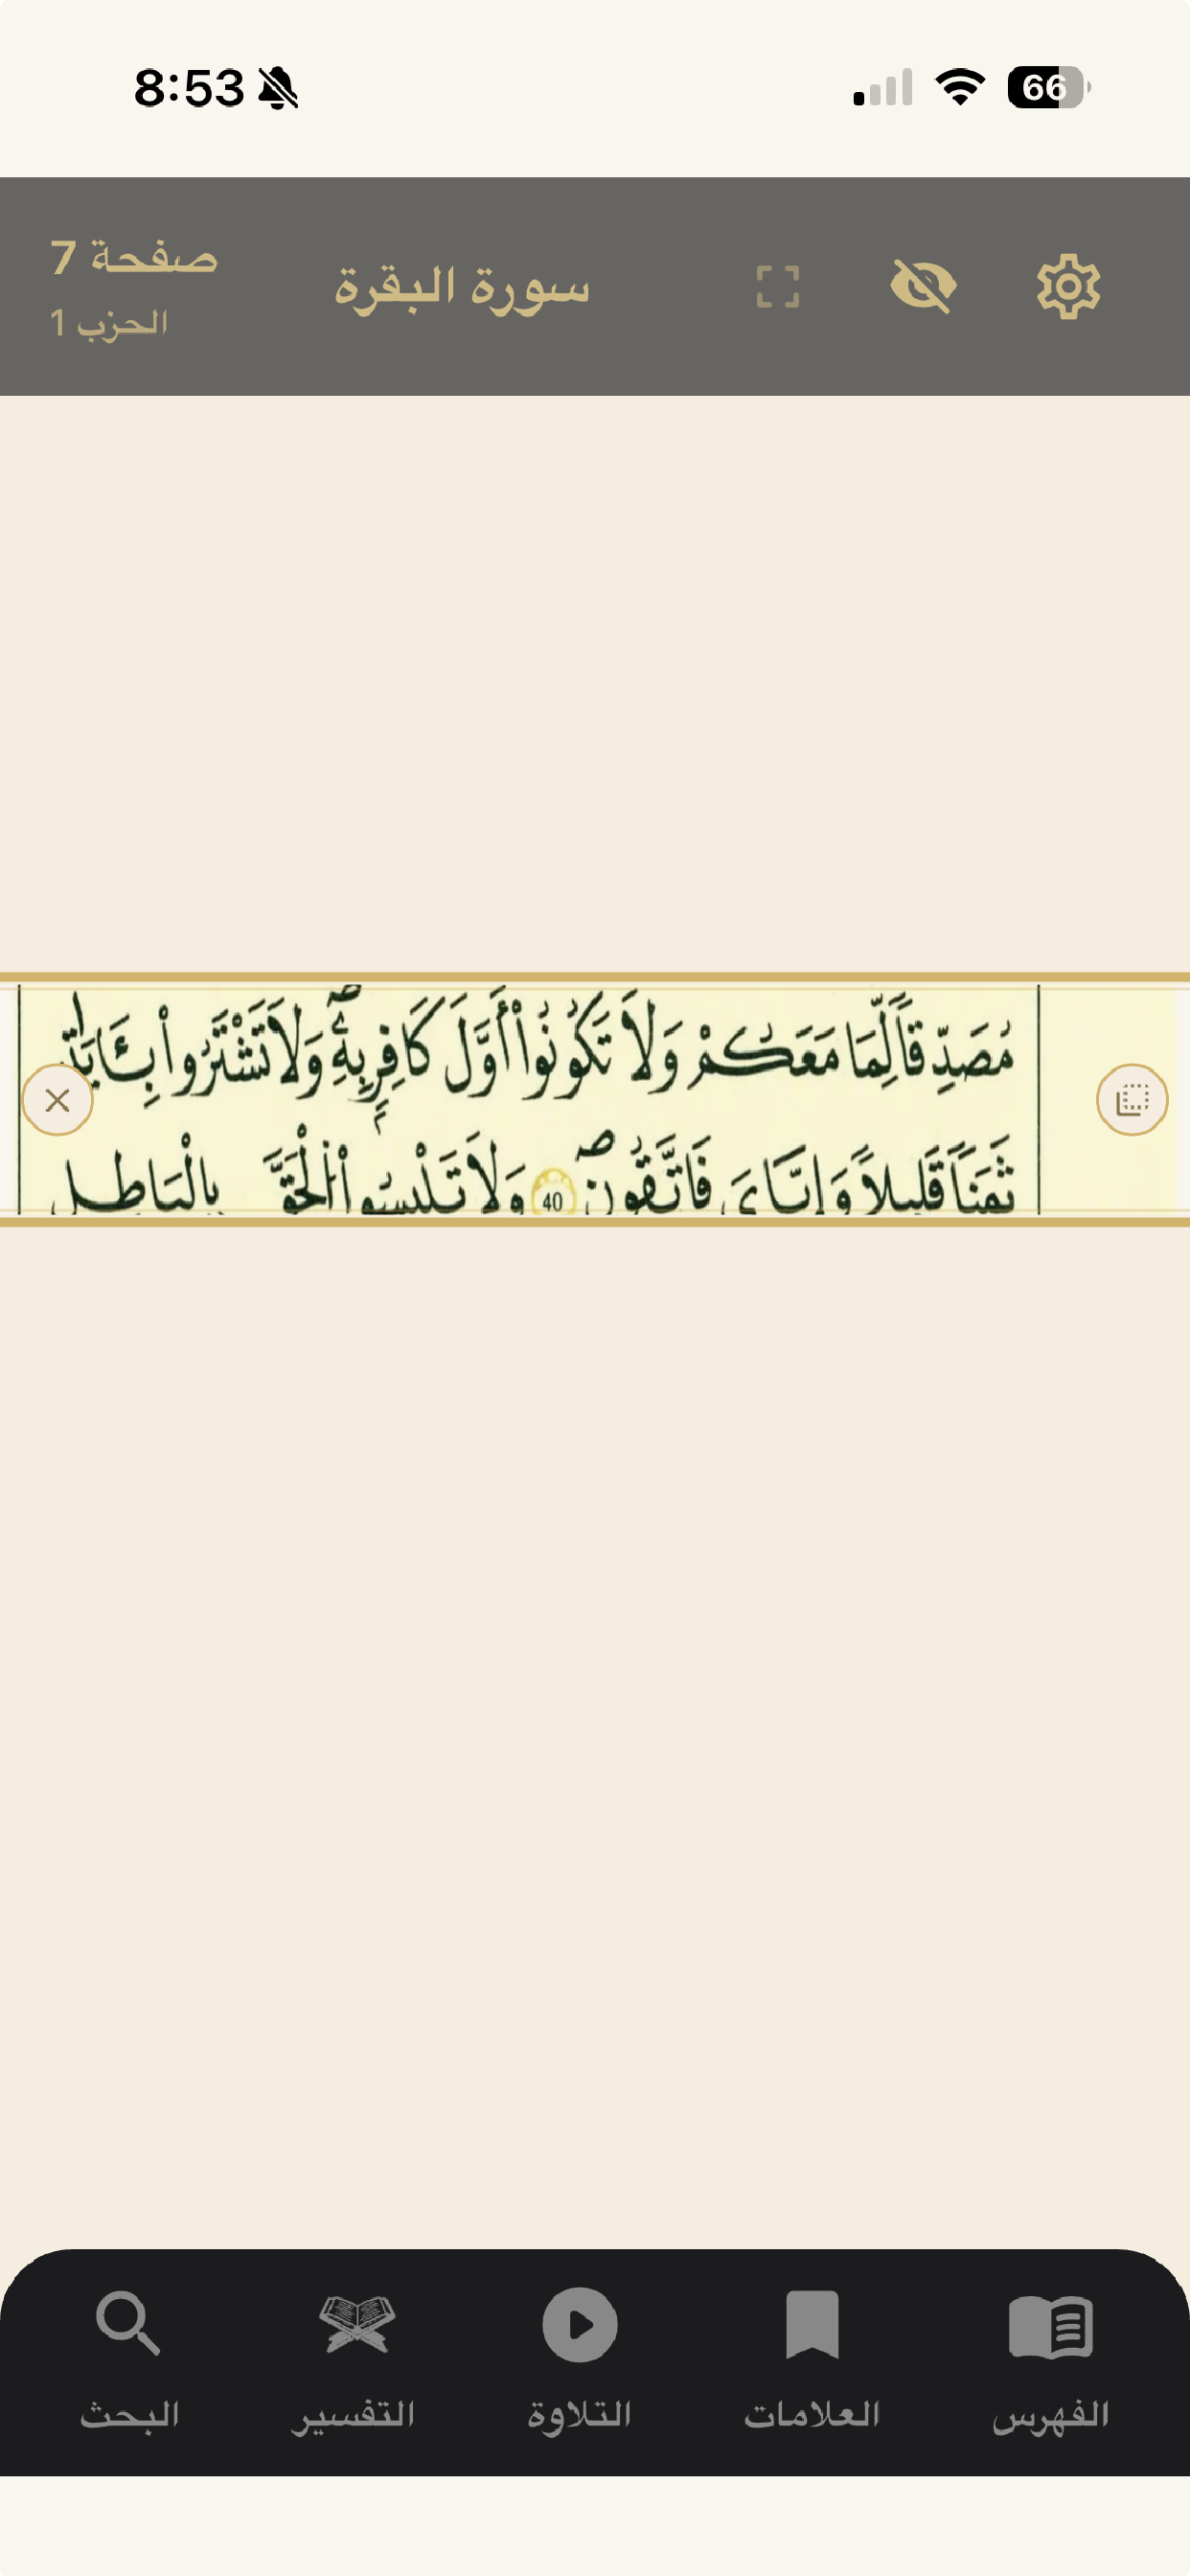 8:53
66
صفحة 7
الحزب 1
سورة البقرة
مُصَدِّقاً لِّمَا مَعَكُمْ وَلَا تَكُونُواْ أَوَّلَ كَافِرٍۢ بِهِۦ وَلَا تَشْتَرُواْ بِـَٔايَٰتِے
ثَمَناً قَلِيلاً وَإِيَّٰيَ فَاتَّقُونِ 40 وَلَا تَلْبِسُواْ الْحَقَّ بِالْبَٰطِلِ
البحث
التفسير
التلاوة
العلامات
الفهرس